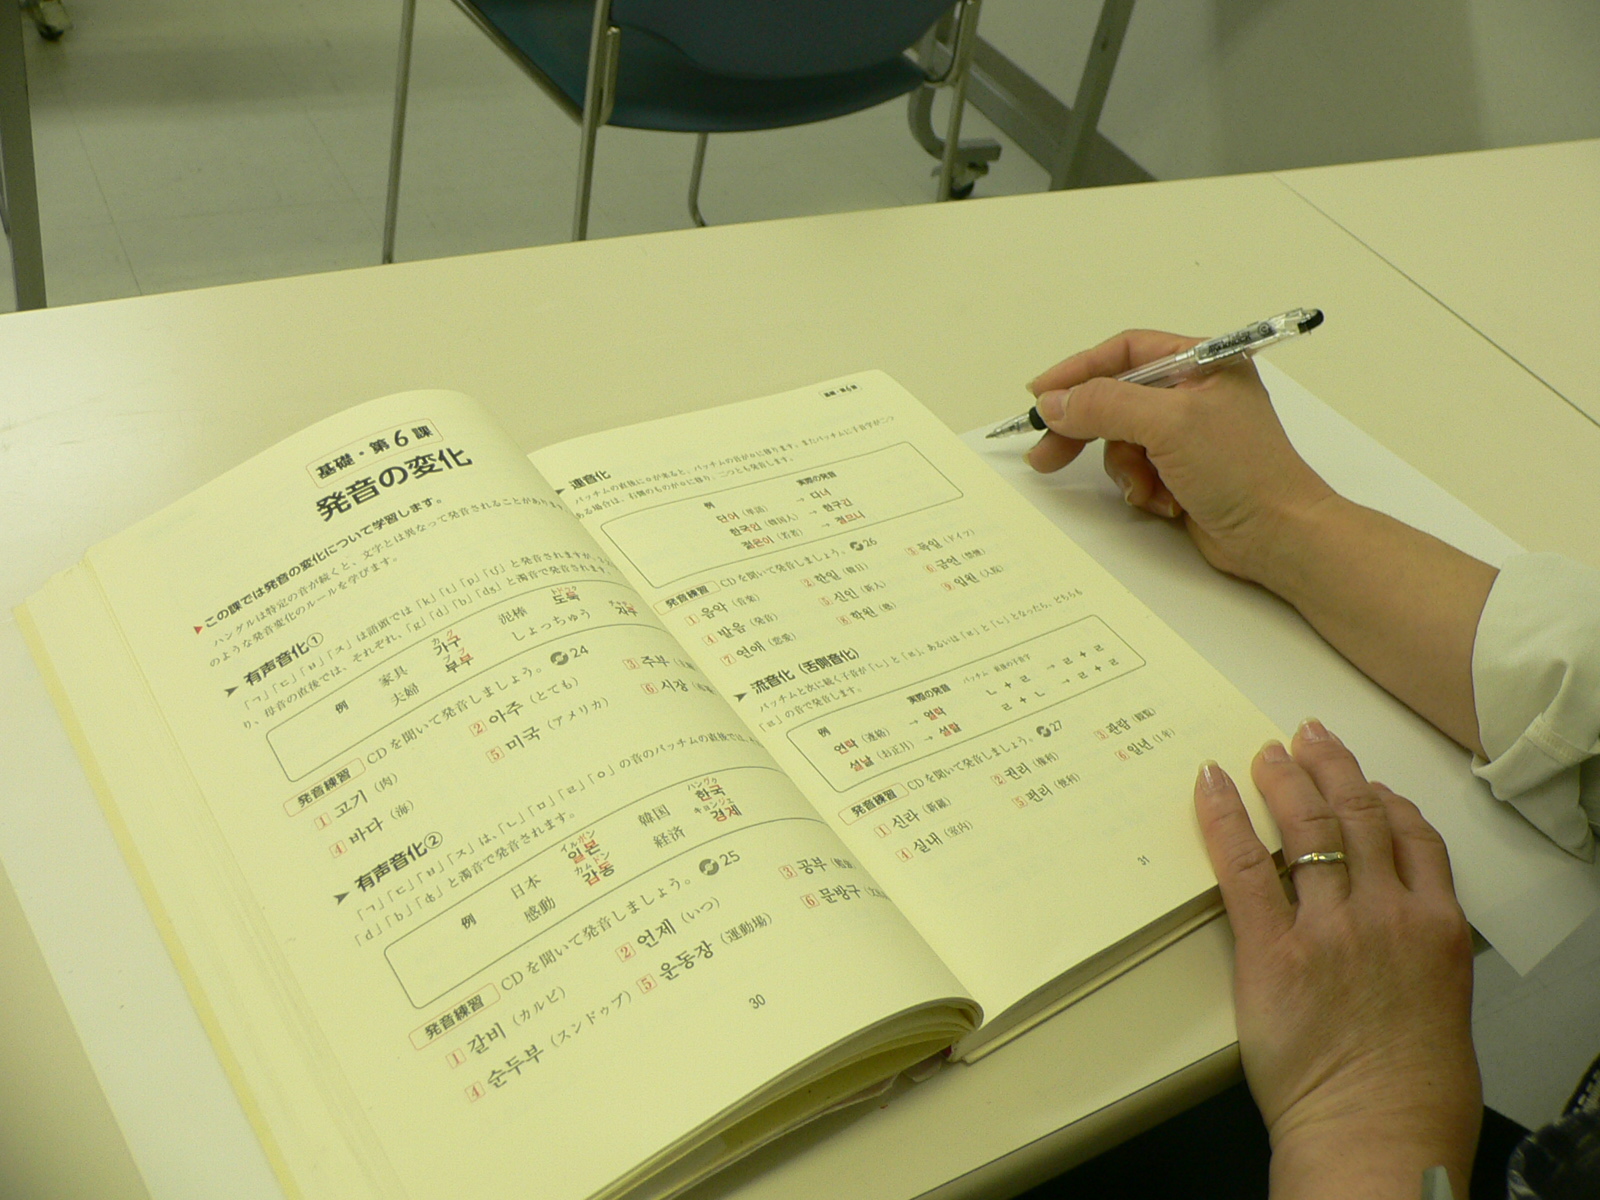 基礎・第6課
発音の変化
▶この課では発音の変化について学習します。
ハングルは特定の音が続くと、文字とは異なって発音されることがあります
のような発音変化のルールを学びます。
➤有声音化①
「ㄱ」「ㄷ」「ㅂ」「ㅈ」は語頭では「k」「t」「p」「tʃ」と発音されますが、
り、母音の直後では、それぞれ、「g」「d」「b」「dʒ」と濁音で発音されます。
例 家具 가구 カグ 泥棒 도둑 トドゥク
夫婦 부부 ププ しょっちゅう 자주
発音練習 CDを聞いて発音しましょう。24
1 고기（肉） 2 아주（とても） 3 주부
4 바다（海） 5 미국（アメリカ） 6 시장
➤有声音化②
「ㄱ」「ㄷ」「ㅂ」「ㅈ」は、「ㄴ」「ㅁ」「ㄹ」「ㅇ」の音のパッチムの直後では、
「d」「b」「dʒ」と濁音で発音されます。
例 日本 일본 イルボン 韓国 한국 ハングク
感動 감동 カムドン 経済 경제 キョンジェ
発音練習 CDを聞いて発音しましょう。25
1 갈비（カルビ） 2 언제（いつ） 3 공부
4 순두부（スンドゥブ） 5 운동장（運動場） 6 문방구
30
基礎・第6課
➤連音化
パッチムの直後にㅇが来ると、パッチムの音がㅇに移ります。またパッチムに子音字が二つ
ある場合は、右側のものがㅇに移り、二つとも発音します。
例 実際の発音
단어（単語） → 다너
한국인（韓国人） → 한구긴
젊은이（若者） → 절므니
発音練習 CDを聞いて発音しましょう。26
1 음악（音楽） 2 한일（韓日） 3 독일（ドイツ）
4 발음（発音） 5 신인（新人） 6 금연（禁煙）
7 연애（恋愛） 8 학원（塾） 9 입원（入院）
➤流音化（舌側音化）
パッチムと次に続く子音が「ㄴ」と「ㄹ」、あるいは「ㄹ」と「ㄴ」となったら、どちらも
「ㄹ」の音で発音します。
例 実際の発音 パッチム 直後の子音字
연락（連絡） → 열락 ㄴ + ㄹ → ㄹ + ㄹ
설날（お正月） → 설랄 ㄹ + ㄴ → ㄹ + ㄹ
発音練習 CDを聞いて発音しましょう。27
1 신라（新羅） 2 권리（権利） 3 관람（観覧）
4 실내（室内） 5 편리（便利） 6 일년（1年）
31